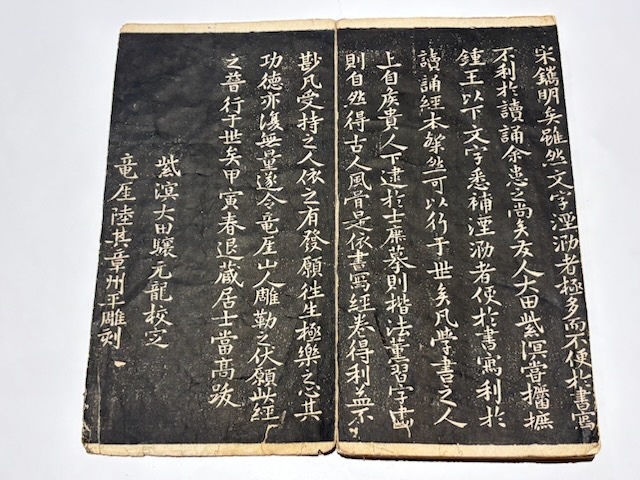 宋鐫明矣雖然文字湮泐者極多而不便於書寫
不利於讀誦余患之尚矣友人大田紫溟嘗搨摭
鍾王以下文字悉補湮泐者便於書寫利於
讀誦經本粲然可以行于世矣凡學書之人
上自侯貴人下逮於士庶摹則楷法薰習字畫
則自然得古人風骨是依書寫經卷得利益不
尠凡受持之人依之有發願徃生極樂之志其
功德亦復無量遂令竜厓山人雕勒之伏願此經
之普行于世矣甲寅春退藏居士當髙跋
紫溟大田驥元龍校定
竜厓陸其章州平雕刻